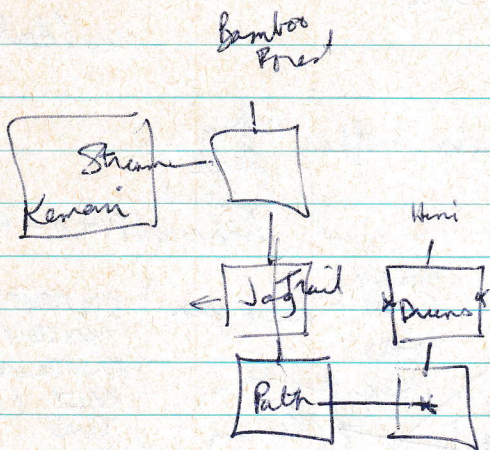 Bamboo
Forest
Stream
Kemari
Jag Trail
Drums
Path